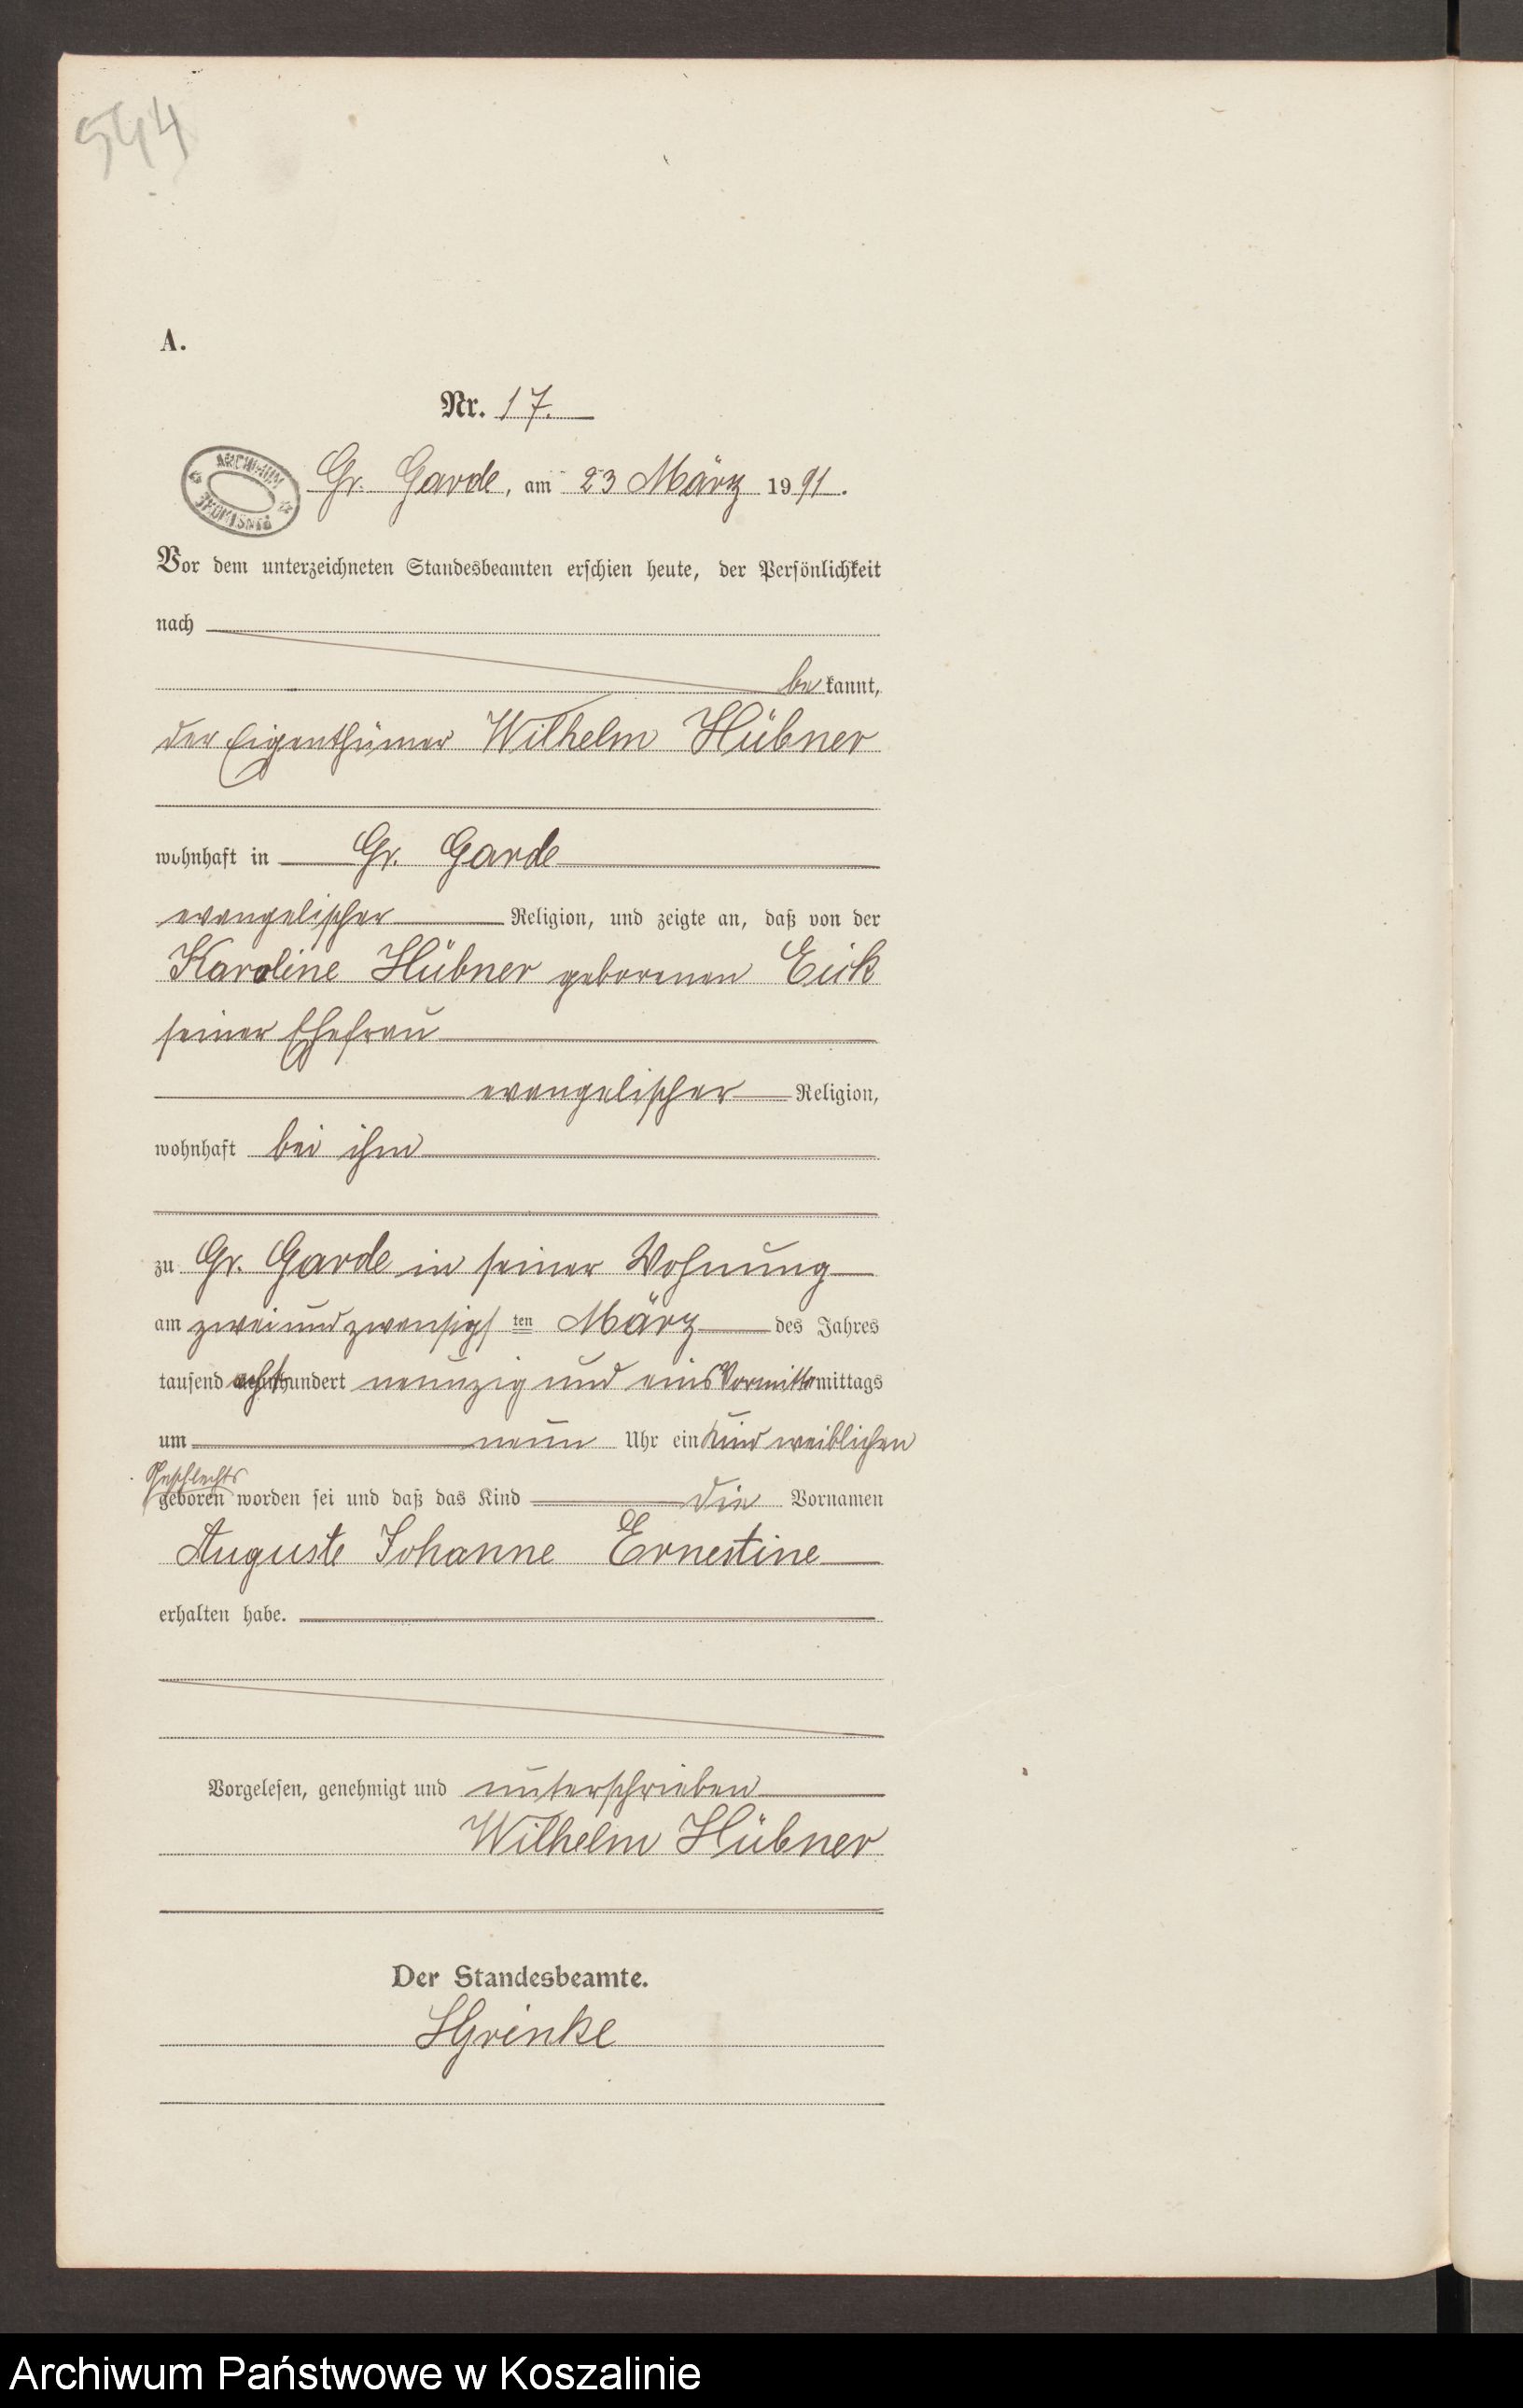 544
A.
Nr. 17.
ARCHIWUM
Gr. Garde, am 23 März 1991.
Vor dem unterzeichneten Standesbeamten erschien heute, der Persönlichkeit
nach
be kannt,
der Eigenthümer Wilhelm Hübner
wohnhaft in Gr. Garde
evangelischer Religion, und zeigte an, daß von der
Karoline Hübner geborenen Eick
seiner Ehefrau
evangelischer Religion,
wohnhaft bei ihm
zu Gr. Garde in seiner Wohnung
am zweiundzwansigs ten März des Jahres
tausend acht hundert neunzig und eins Vormitta mittags
um neun Uhr ein Kind weiblichen
Geschlechts
geboren worden sei und daß das Kind die Vornamen
Auguste Johanne Ernestine
erhalten habe.
Vorgelesen, genehmigt und unterschrieben
Wilhelm Hübner
Der Standesbeamte.
Grinke
Archiwum Państwowe w Koszalinie